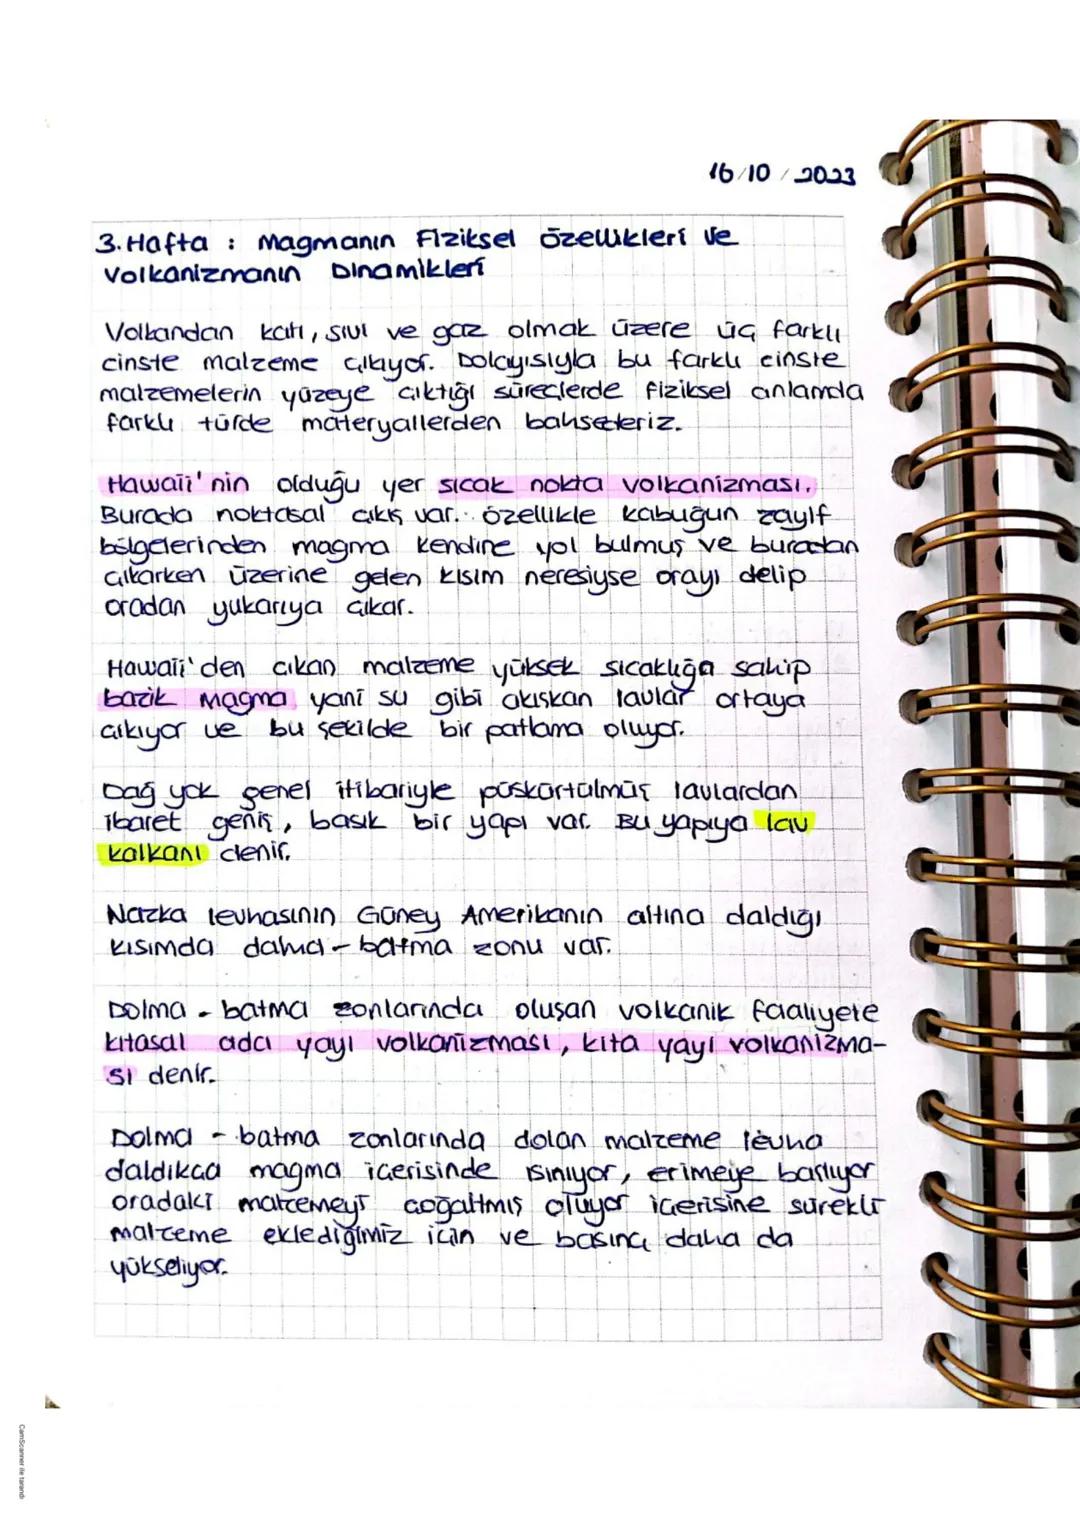 16/10/2023
3. Hafta : Magmanın Fiziksel özellikleri ve
Volkanizmanın Dinamikleri
Volkandan katı, sıvı ve gaz olmak üzere üç farklı
cinste malzeme çıkıyor. Dolayısıyla bu farklı cinste
malzemelerin yüzeye çıktığı süreçlerde fiziksel anlamda
farklı türde materyallerden bahsederiz.
Hawaii'nin olduğu yer sıcak nokta volkanizması.
Burada noktasal çıkış var. özellikle kabuğun zayıf
bölgelerinden magma kendine yol bulmuş ve buradan
çıkarken üzerine gelen kısım neresiyse orayı delip
oradan yukarıya çıkar.
Hawaii'den çıkan malzeme yüksek sıcaklığa sahip
bazik magma yani su gibi akışkan lavlar ortaya
çıkıyor ve bu şekilde bir patlama oluyor.
Dağ yok genel itibariyle püskürtülmüş lavlardan
ibaret geniş, basık bir yapı var. Bu yapıya lav
kalkanı denir.
Nazka levhasının Güney Amerikanın altına daldığı
kısımda dalma - batma zonu var.
Dalma - batma zonlarında oluşan volkanik faaliyete
kıtasal ada yayı volkanizması, kıta yayı volkanizma-
sı denir.
Dalma - batma zonlarında dalan malzeme levha
daldıkca magma içerisinde ısınıyor, erimeye başlıyor
oradaki malzemeyi çoğaltmış oluyor içerisine sürekli
malzeme eklediğimiz için ve basınç daha da
yükseliyor.
CamScanner ile tarandı